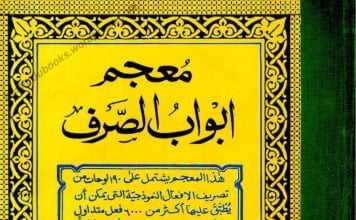 معجم
ابواب الصّرف
هٰذا المعجم يشتمل على ٩٠ لوحات من
تصريف الافعال النموذجيّة التى يمكن أن
يُطبّق عليها أكثر من ٦٠٠٠ فعل متداول